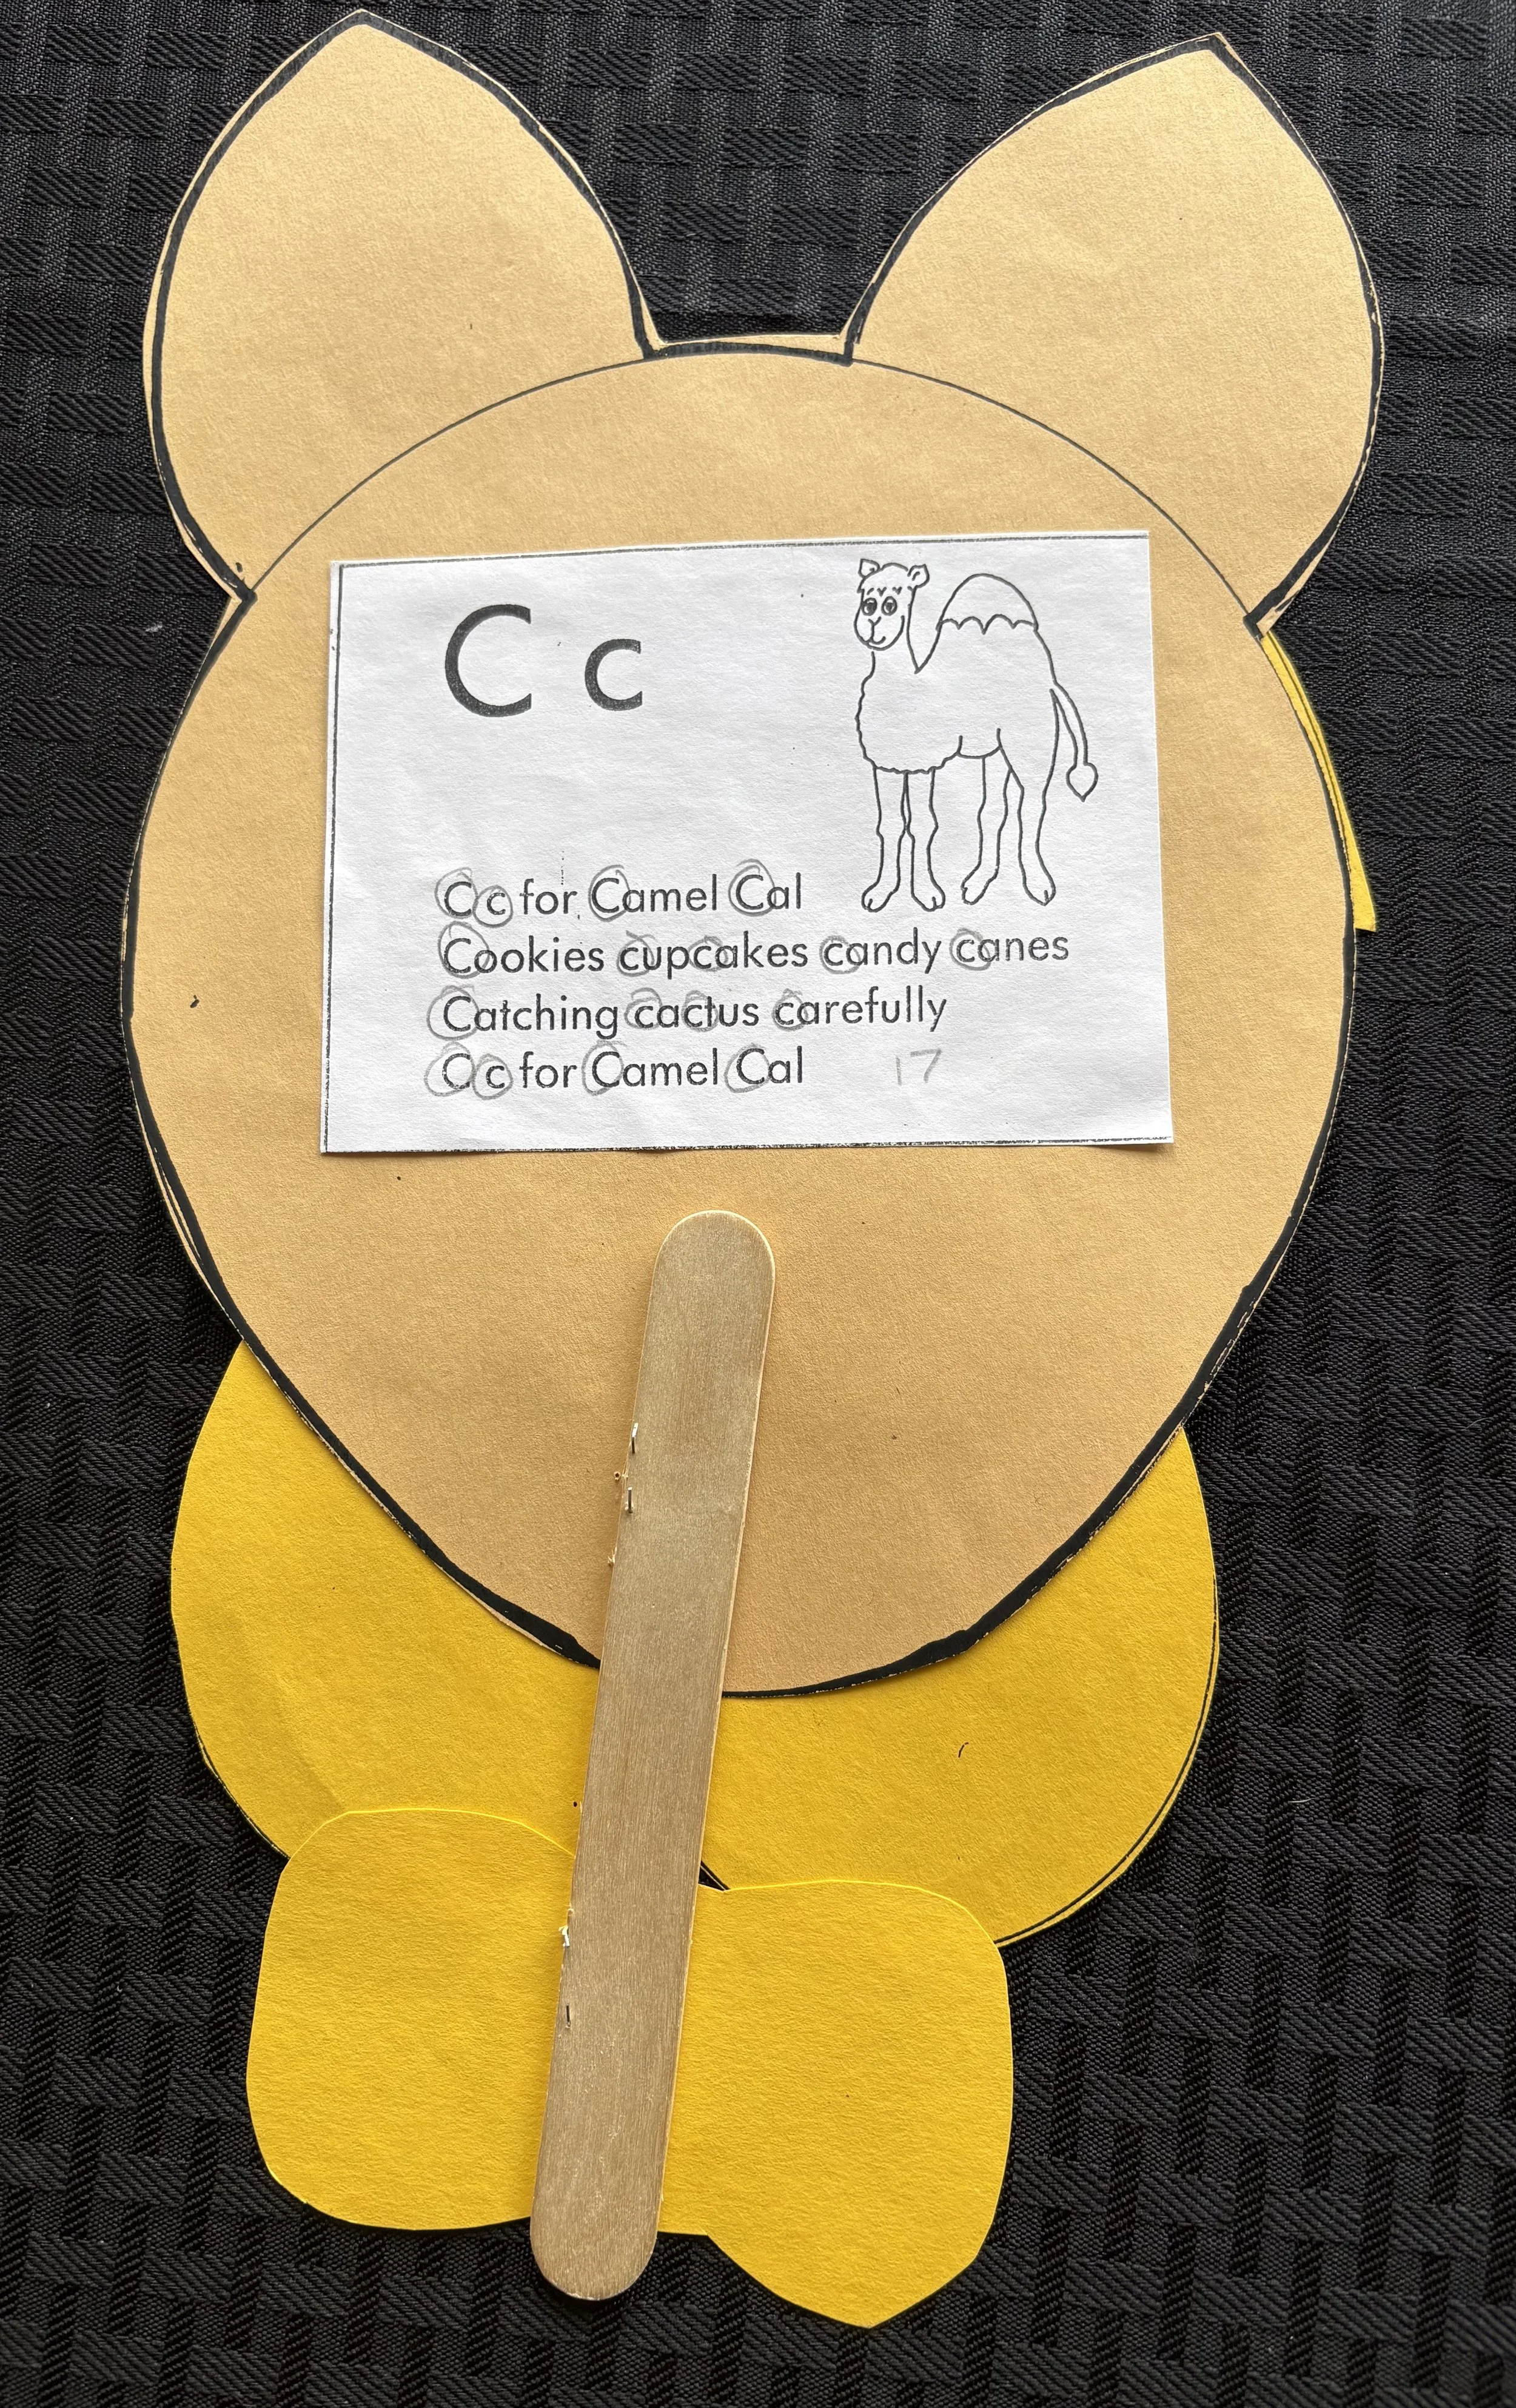 C c
C c for Camel Cal
Cookies cupcakes candy canes
Catching cactus carefully
C c for Camel Cal 17